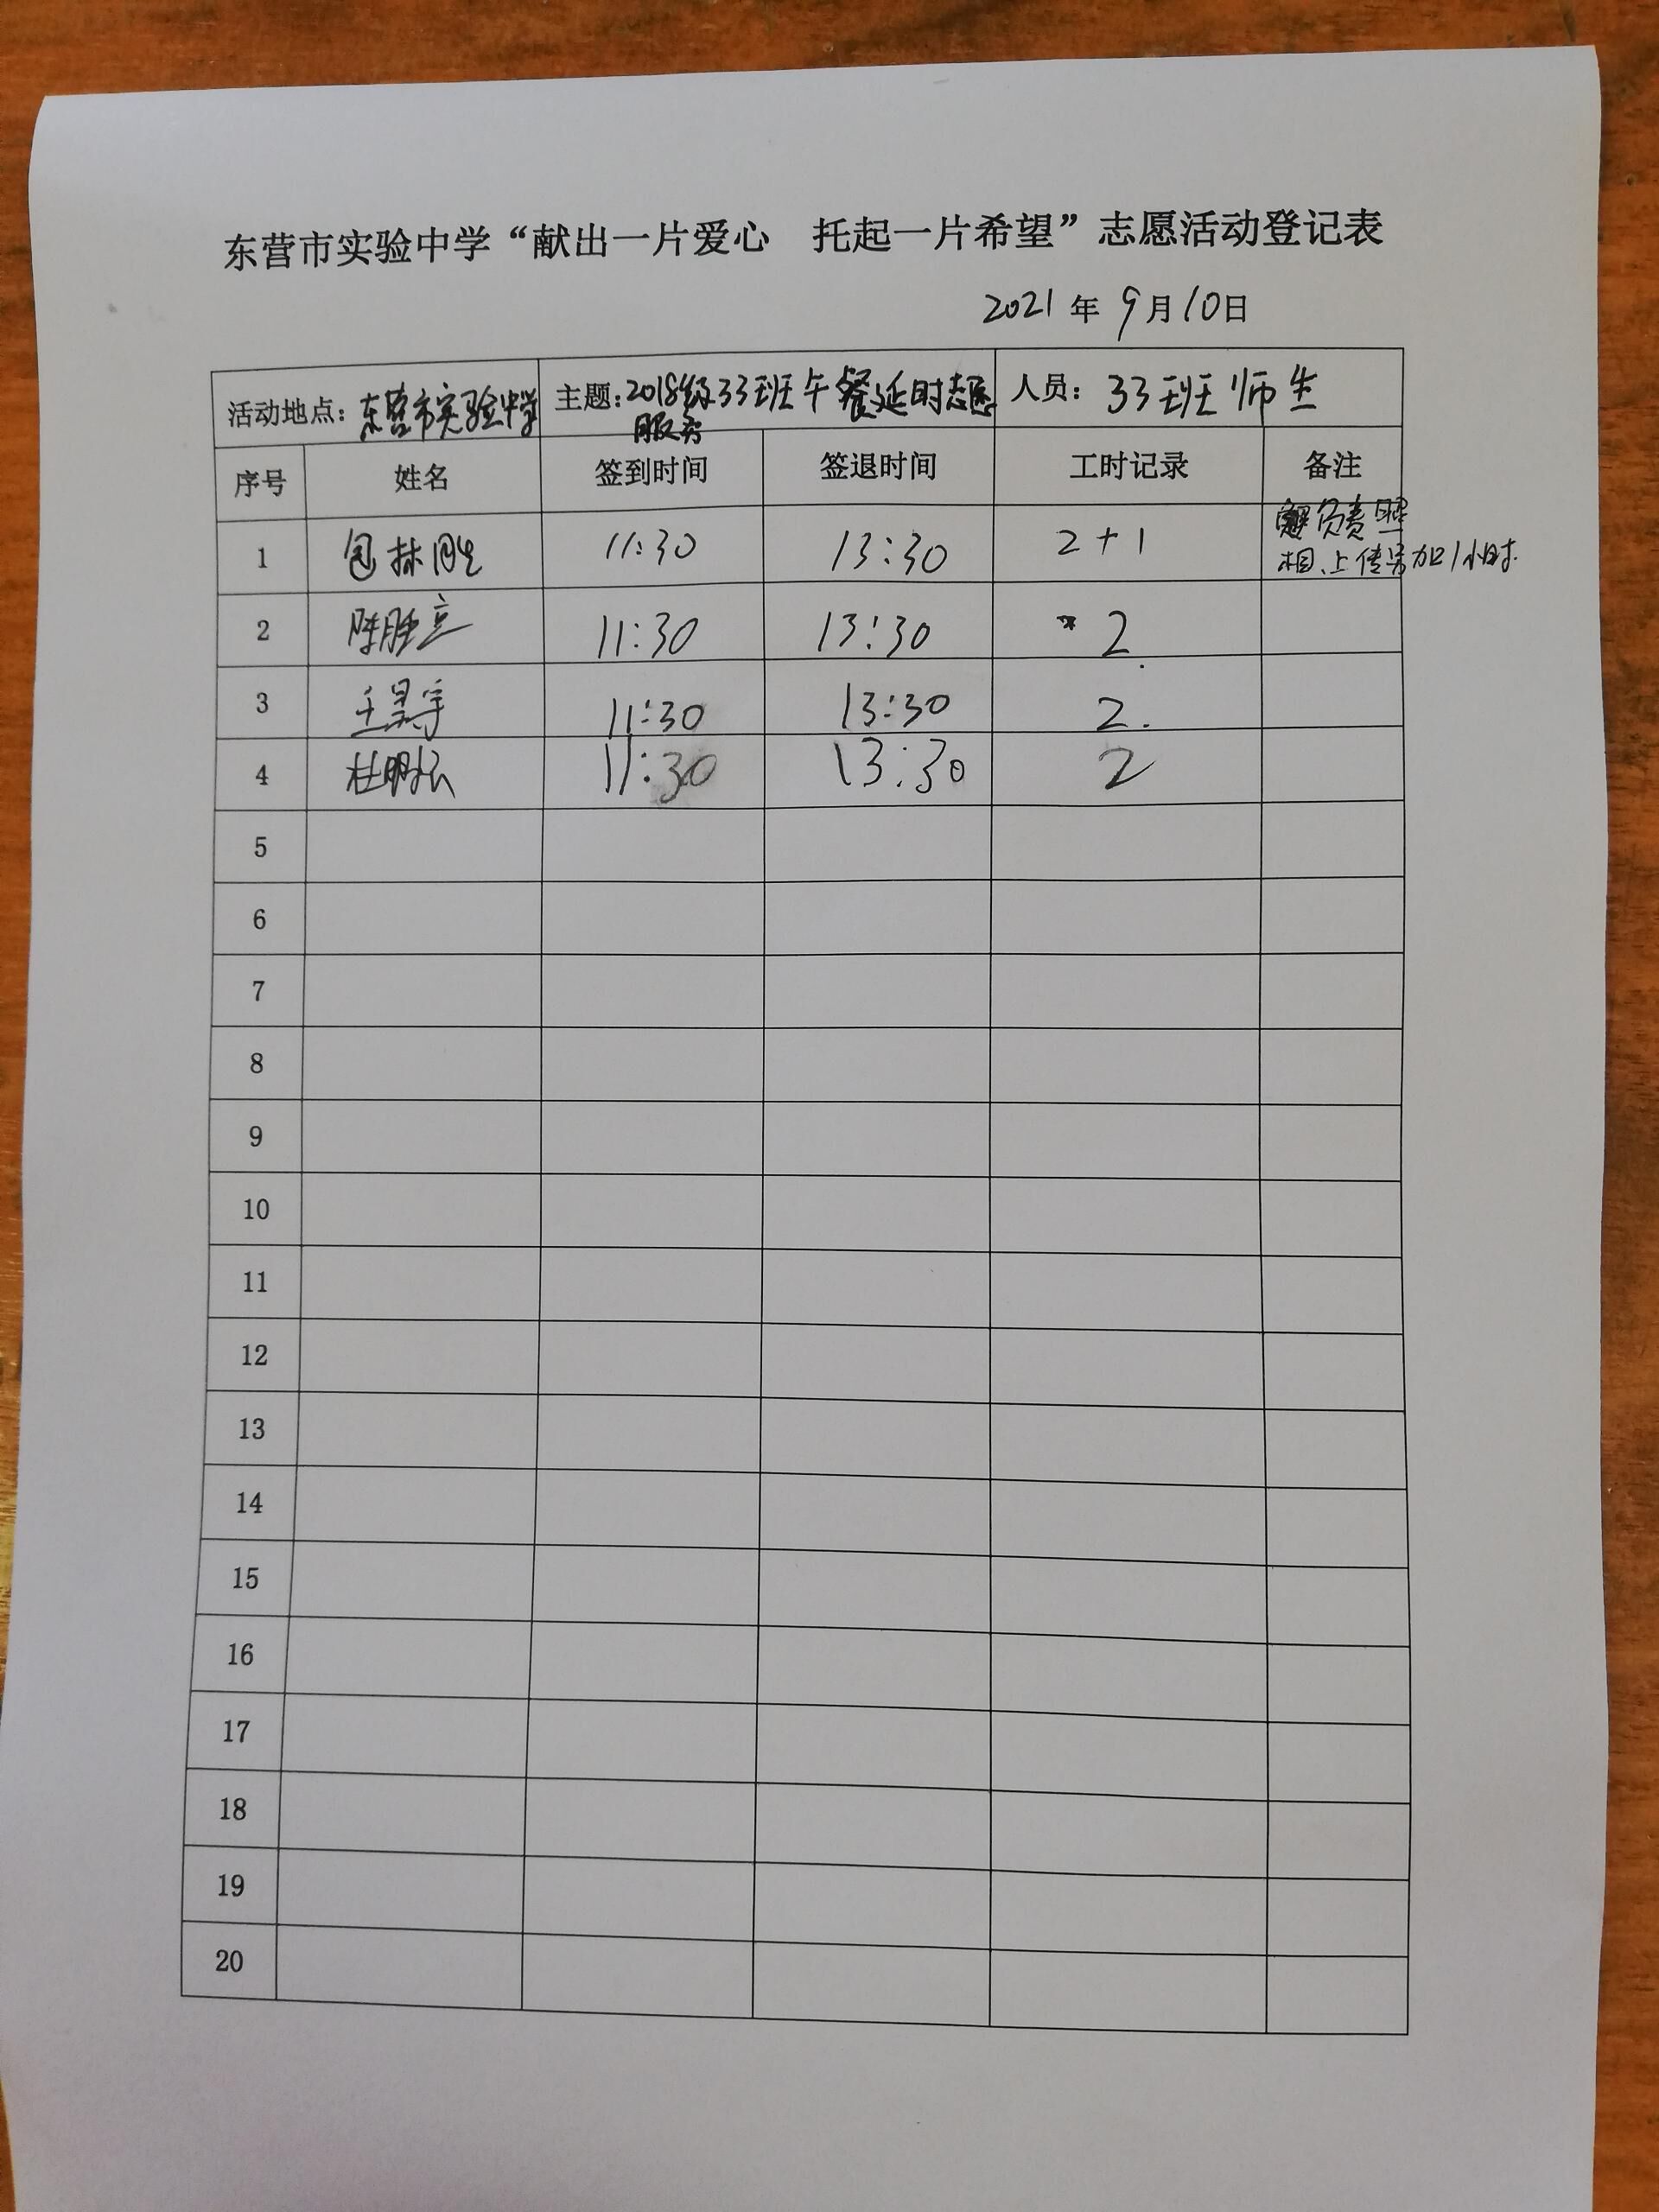 东营市实验中学“献出一片爱心　托起一片希望”志愿活动登记表
2021年9月10日
活动地点：东营市实验中学 主题：2018级33班午餐延时志愿服务 人员：33班师生
序号 姓名 签到时间 签退时间 工时记录 备注
1 包林 11:30 13:30 2+1 负责照相、上传另加1小时
2 陈胜 11:30 13:30 2
3 王昊宇 11:30 13:30 2.
4 杜明 11:30 13:30 2
5
6
7
8
9
10
11
12
13
14
15
16
17
18
19
20